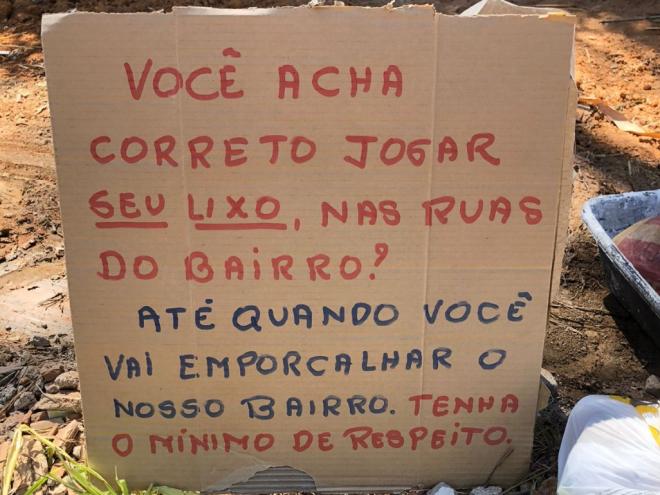 VOCÊ ACHA
CORRETO JOGAR
SEU LIXO, NAS RUAS
DO BAIRRO?
ATÉ QUANDO VOCÊ
VAI EMPORCALHAR O
NOSSO BAIRRO. TENHA
O MÍNIMO DE RESPEITO.